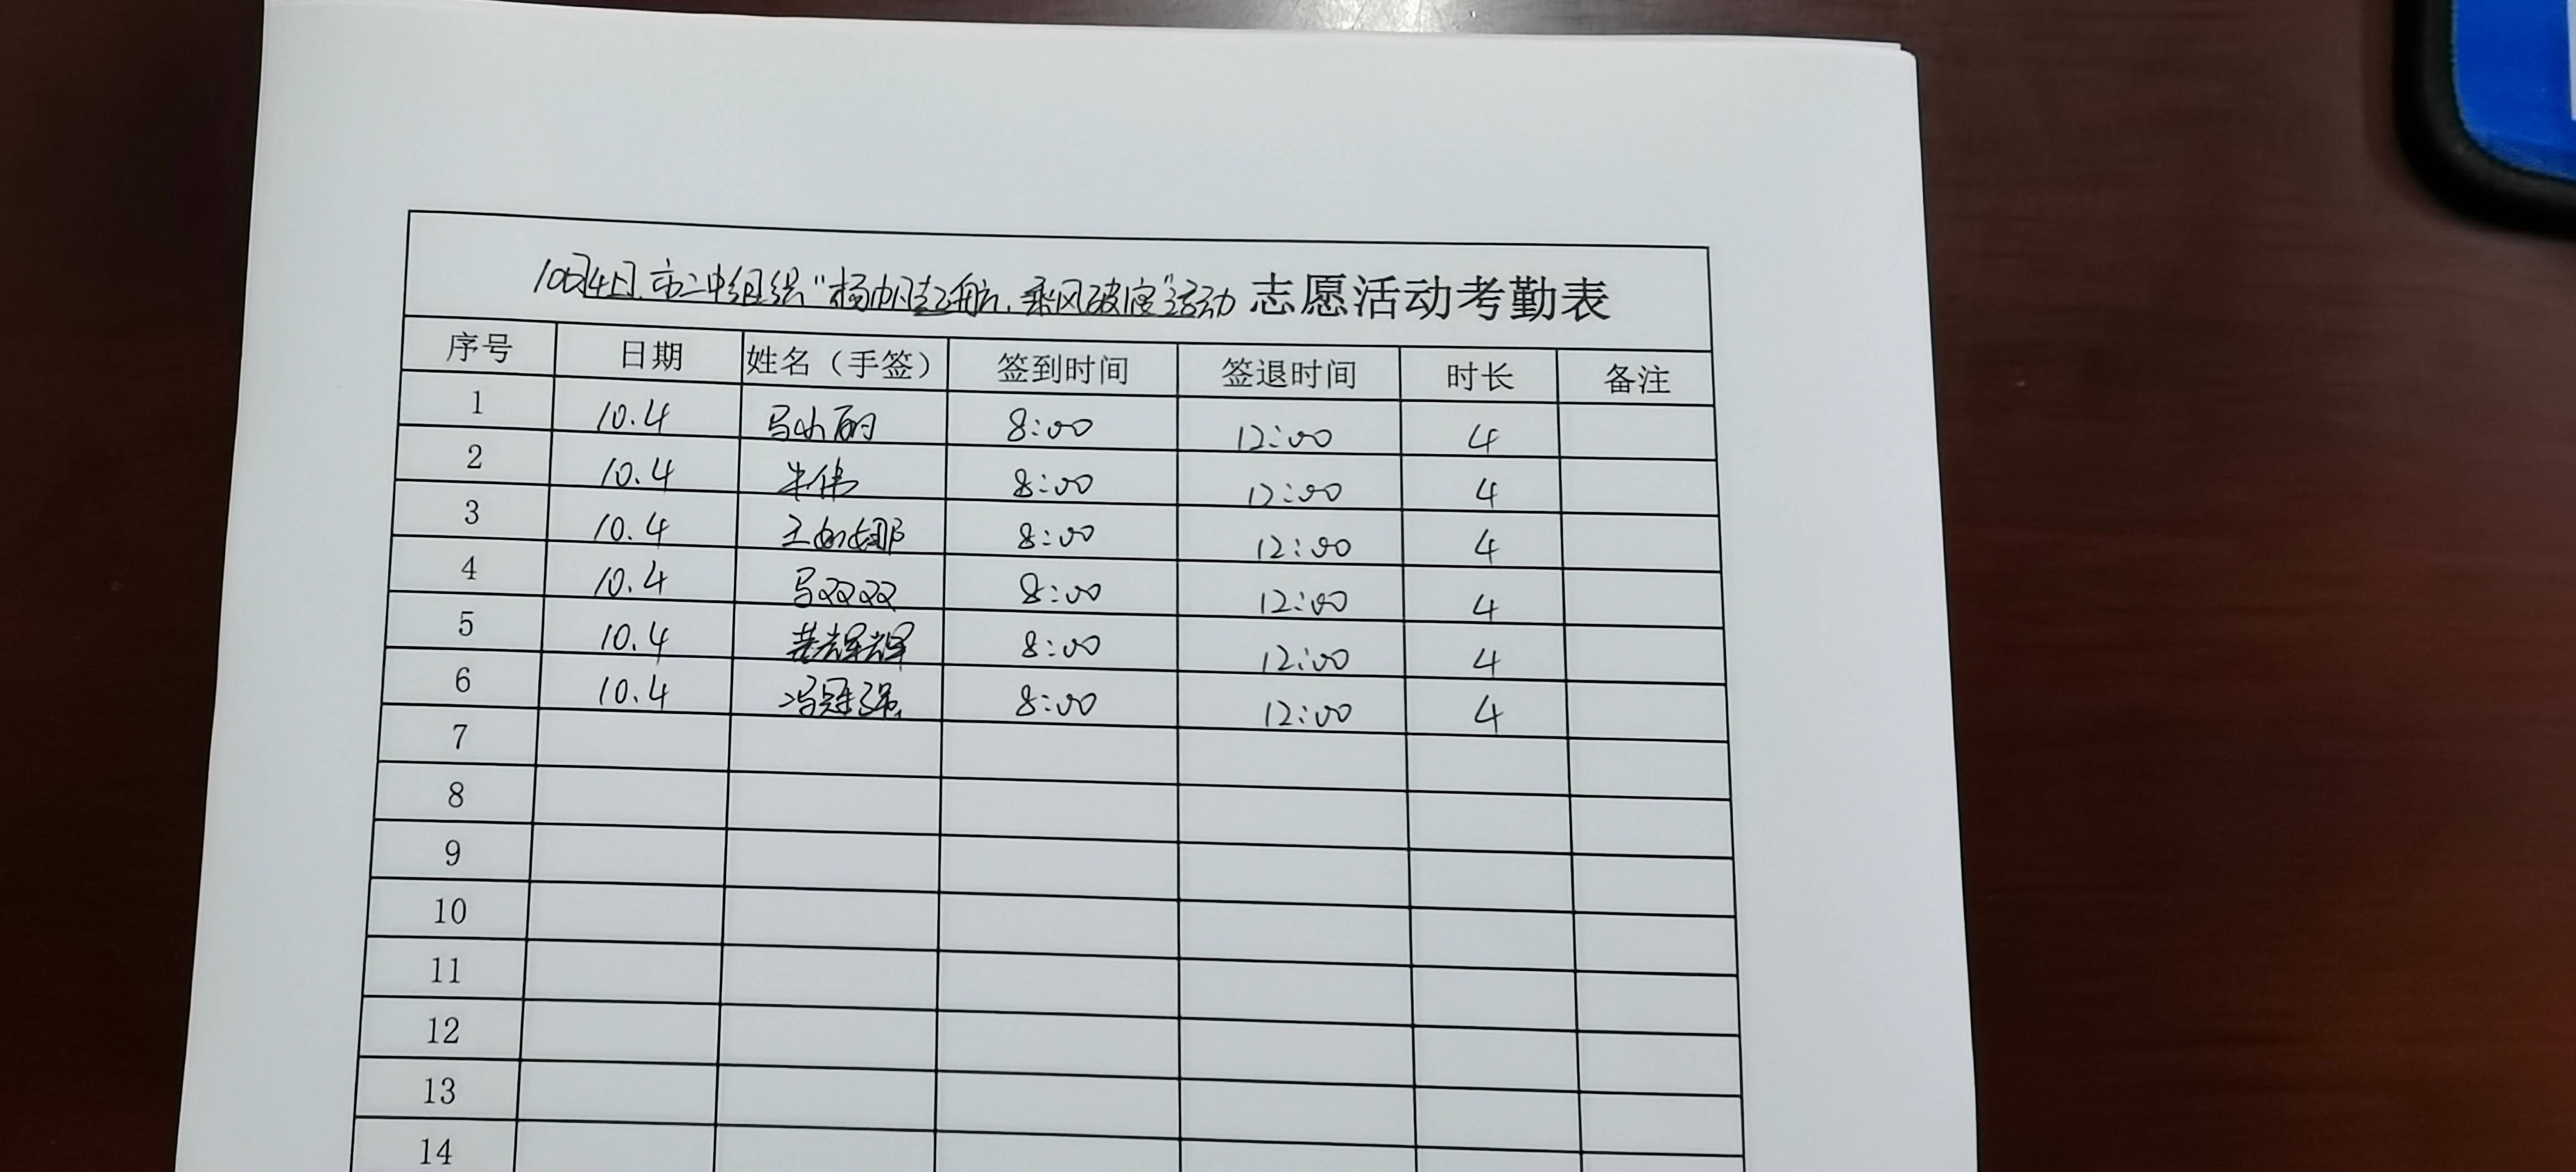 10月4日,市二中组织“杨帆起航,乘风破浪”活动 志愿活动考勤表
序号 日期 姓名（手签） 签到时间 签退时间 时长 备注
1 10.4 马小丽 8:00 12:00 4
2 10.4 牛伟 8:00 12:00 4
3 10.4 王娜 8:00 12:00 4
4 10.4 马双双 8:00 12:00 4
5 10.4 黄辉辉 8:00 12:00 4
6 10.4 冯冠强 8:00 12:00 4
7
8
9
10
11
12
13
14